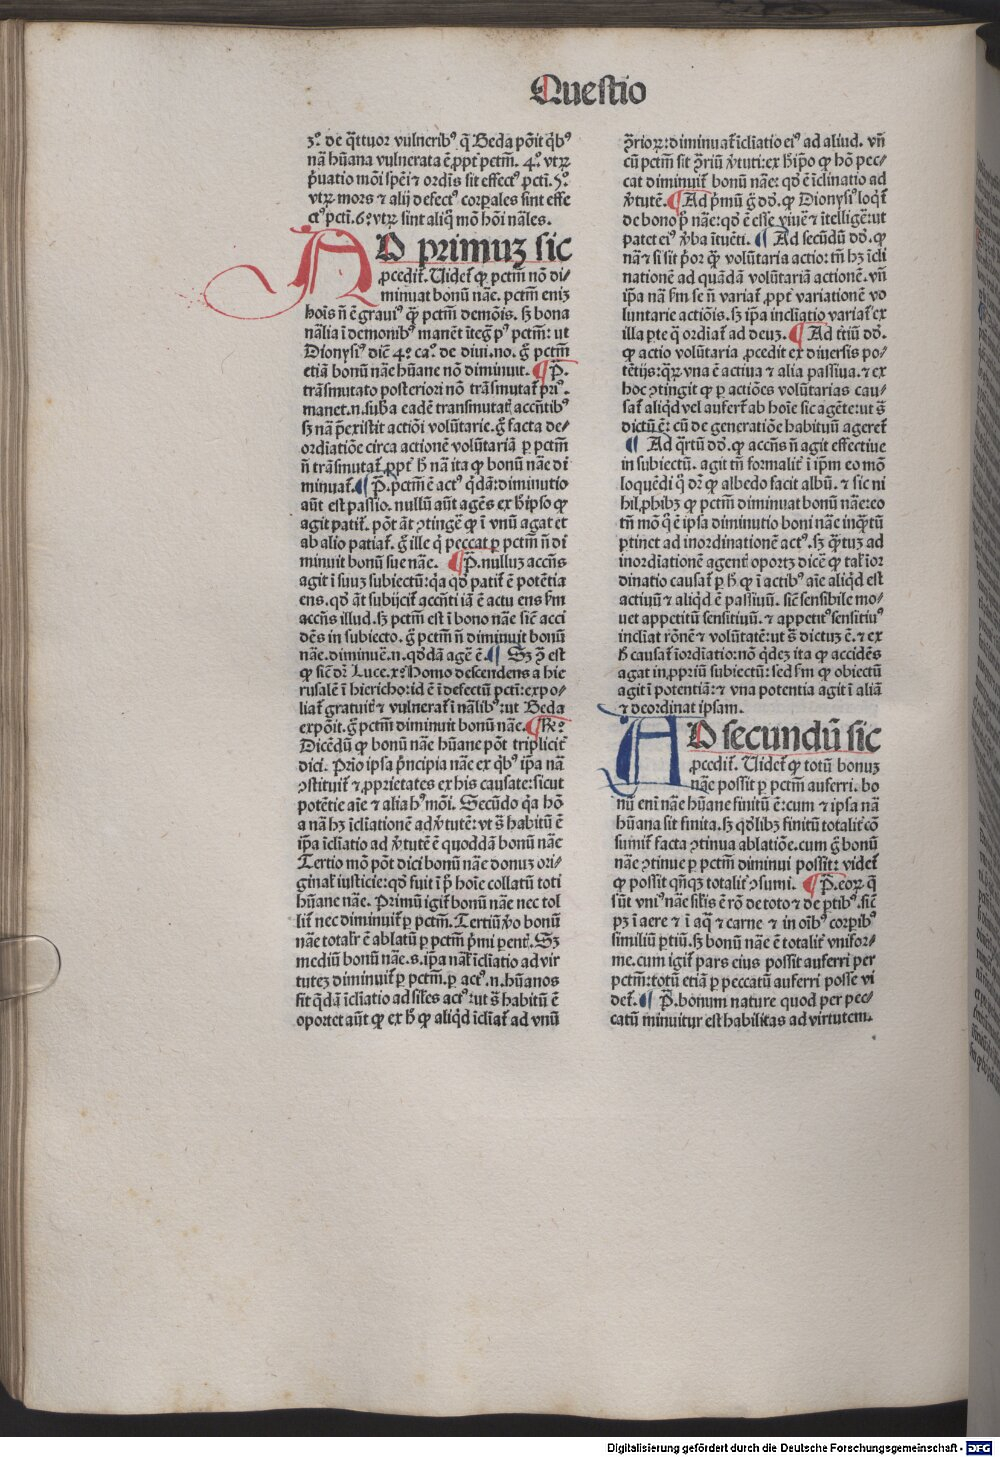 Questio
3º. de q̃ttuor vulneribꝰ q̃ Beda põit q̃bꝰ
nã hũana vulnerata ẽ ꝓpt̃ pctm̃. 4º. vtrꝝ
p̃uatio mõi spẽi ⁊ ordĩs sit effectꝰ pcti. 5º.
vtrꝝ mors ⁊ alij defectꝰ corꝑales sint effe
ctꝰ pcti. 6º vtrꝝ sint aliq̃ mõ hõi nãles.
AD primuz sic
ꝓcedit̃. Uidet̃ ꝙ pctm̃ nõ di⸗
minuat bonũ nãe. pctm̃ eniz
hoĩs ñ ẽ grauiꝰ q̃ꝫ pctm̃ demõis. sꝫ bona
nãlia ĩ demonibꝰ manẽt ĩteg̃ pꝰ pctm̃: ut
Dionysiꝰ dic̃ 4º. ca. de diui. no. g̃ pctm̃
etiã bonũ nãe hũane nõ diminuit. ¶ P̃.
trãsmutato posteriori nõ trãsmutat̃ pri⁹.
manet .n. suba eadẽ transmutat̃ accñtibꝰ
sꝫ nã p̃existit actiõi volũtarie. g̃ facta de⸗
ordĩatiõe circa actionẽ volũtariã ꝑ pctm̃
ñ trãsmutat̃ ꝓpt̃ h̃ nã ita ꝙ bonũ nãe di
minuat̃. ¶ P̃. pctm̃ ẽ actꝰ q̃dã: diminutio
aũt est passio. nullũ aũt agẽs ex h̃ ip̃o ꝙ
agit patit̃. põt ãt ꝯtingẽ ꝙ ĩ vnũ agat et
ab alio patiat̃. g̃ ille q̃ peccat ꝑ pctm̃ ñ di
minuit bonũ sue nãe. ¶ P̃. nulluz accñs
agit ĩ suuz subiectũ: q̃a qd̃ patit̃ ẽ potẽtia
ens. qd̃ ãt subijcit̃ accñti iã ẽ actu ens s̃m
accñs illud. sꝫ pctm̃ est ĩ bono nãe sic̃ acci
dẽs in subiecto. g̃ pctm̃ ñ diminuit bonũ
nãe. diminuẽ .n. qd̃dã agẽ ẽ. ¶ Sꝫ ꝯ̃ est
ꝙ sic̃ dr̃ Luce. x. Homo descendens a hie
rusalẽ ĩ hiericho: id ẽ ĩ defectũ pcti: expo⸗
liat̃ gratuit̃ ⁊ vulnerat̃ ĩ nãlibꝰ: ut Beda
expõit. g̃ pctm̃ diminuit bonũ nãe. ¶ Rº
Dicẽdũ ꝙ bonũ nãe hũane põt triplicit̃
dici. Prĩo ipsa p̃ncipia nãe ex q̃bꝰ ip̃a nã
ꝯstituit̃ ⁊ ꝓprietates ex his causate: sicut
potẽtie aĩe ⁊ alia hꝰmõi. Secũdo q̃a hõ
a nã hꝫ ĩcliatiõnẽ ad v̾tutẽ: vt s̃ habitũ ẽ
ip̃a ĩcliatio ad v̾tutẽ ẽ quoddã bonũ nãe
Tertio mõ põt dici bonũ nãe donuz ori⸗
ginal̃ iusticie: qd̃ fuit ĩ p̃ hoĩe collatũ toti
hũane nãe. Primũ igit̃ bonũ nãe nec tol
lit̃ nec diminuit̃ ꝑ pctm̃. Tertiũ v̾o bonũ
nãe totalr̃ ẽ ablatũ ꝑ pctm̃ p̃mi pent̃. Sꝫ
mediũ bonũ nãe .s. ip̃a nãl̃ ĩcliatio ad vir
tutez diminuit̃ ꝑ pctm̃. ꝑ actꝰ .n. hũanos
sit q̃dã ĩcliatio ad siles actꝰ: ut s̃ habitũ ẽ
oportet aũt ꝙ ex h̃ ꝙ aliq̃d ĩcliat̃ ad vnũ
ꝯ̃rioꝝ: diminuat̃ ĩcliatio eiꝰ ad aliud. vñ
cũ pctm̃ sit ꝯ̃riũ v̾tuti: ex h̃ ip̃o ꝙ hõ pec⸗
cat diminuit̃ bonũ nãe: qd̃ ẽ ĩclinatio ad
v̾tutẽ. ¶ Ad p̃mũ g̃ dd̃. ꝙ Dionysiꝰ loq̃t̃
de bono p̃ nãe: qd̃ ẽ esse viuẽ ⁊ ĩtelligẽ: ut
patet eiꝰ v̾ba ĩtuẽti. ¶ Ad secũdũ dd̃. ꝙ
nã ⁊ si sit p̃or q̃ꝫ volũtaria actio: tm̃ hꝫ ĩcli
nationẽ ad quãdã volũtariã actionẽ. vñ
ip̃a nã s̃m se ñ variat̃ ꝓpt̃ variationẽ vo
luntarie actiõis. sꝫ ip̃a incliatio variat̃ ex
illa ꝑte q̃ ordiat̃ ad deuz. ¶ Ad t̃tiũ dd̃.
ꝙ actio volũtaria ꝓcedit ex diuersis po⸗
tẽtijs: q̃ꝝ vna ẽ actiua ⁊ alia passiua. ⁊ ex
hoc ꝯtingit ꝙ ꝑ actiões volũtarias cau⸗
sat̃ aliq̃d vel aufert̃ ab hoĩe sic agẽte: ut s̃
dictũ ẽ: cũ de generatiõe habituũ ageret̃
¶ Ad q̃rtũ dd̃. ꝙ accñs ñ agit effectiue
in subiectũ. agit tñ formalit̃ ĩ ip̃m eo mõ
loquẽdi q̃ dr̃ ꝙ albedo facit albũ. ⁊ sic ni
hil ꝓhibꝫ ꝙ pctm̃ diminuat bonũ nãe: eo
tñ mõ q̃ ẽ ipsa diminutio boni nãe inq̃tũ
ꝑtinet ad inordinationẽ actꝰ. sꝫ q̃tuz ad
inordiationẽ agent̃ oportꝫ dicẽ ꝙ tal̃ ior
dinatio causat̃ ꝑ h̃ ꝙ ĩ actibꝰ aĩe aliq̃d est
actiuũ ⁊ aliq̃d ẽ passiuũ. sic̃ sensibile mo⸗
uet appetitũ sensitiuũ. ⁊ appetitꝰ sensitiuꝰ
incliat rõnẽ ⁊ volũtatẽ: ut s̃ dictuz ẽ. ⁊ ex
h̃ causat̃ ĩordiatio: nõ q̃dez ita ꝙ accidẽs
agat in ꝓpriũ subiectũ: sed s̃m ꝙ obiectũ
agit ĩ potẽtiã: ⁊ vna potentia agit ĩ aliã
⁊ deordinat ipsam.
AD secundũ sic
ꝓcedit̃. Uidet̃ ꝙ totũ bonuz
nãe possit ꝑ pctm̃ auferri. bo
nũ eni nãe hũane finitũ ẽ: cum ⁊ ipsa nã
hũana sit finita. sꝫ qd̃libꝫ finitũ totalit̃ cõ
sumit̃ facta ꝯtinua ablatiõe. cum g̃ bonũ
nãe ꝯtinue ꝑ pctm̃ diminui possit: videt̃
ꝙ possit qñqꝫ totalit̃ ꝯsumi. ¶ P̃. eoꝝ q̃
sũt vniꝰ nãe silis ẽ rõ de toto ⁊ de ꝑtibꝰ. sic̃
pꝫ ĩ aere ⁊ ĩ aq̃ ⁊ carne ⁊ in oĩbꝰ corꝑibꝰ
similiũ ꝑtiũ. sꝫ bonũ nãe ẽ totalit̃ vnifor⸗
me. cum igit̃ pars eius possit auferri per
pctm̃: totũ etiã ꝑ peccatũ auferri posse vi
det̃. ¶ P̃. bonum nature quod per pec⸗
catũ minuitur est habilitas ad virtutem.
Digitalisierung gefördert durch die Deutsche Forschungsgemeinschaft - DFG